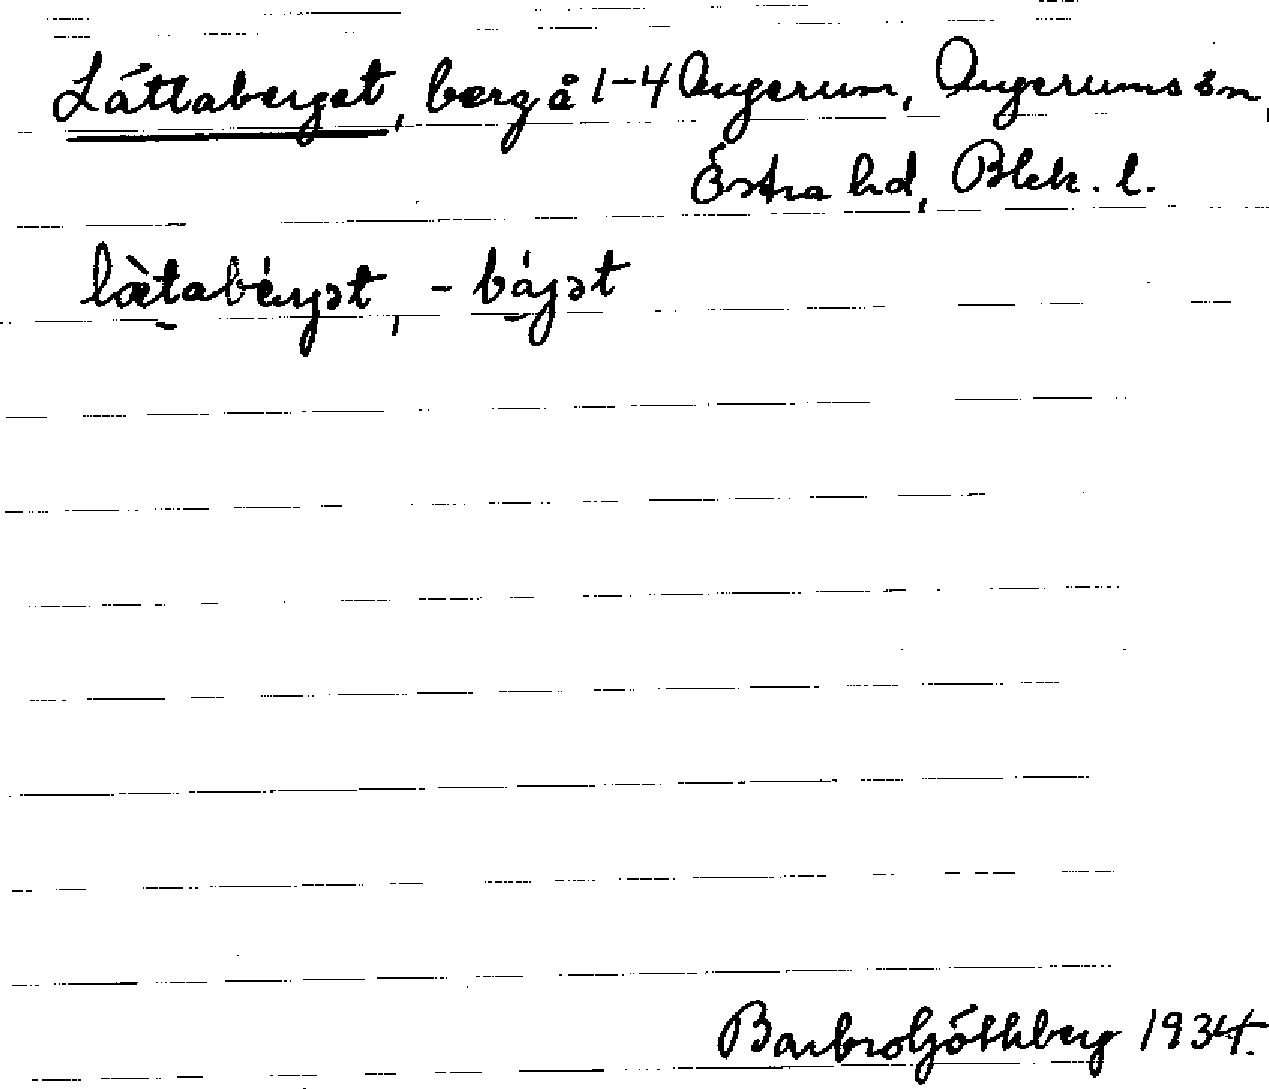 Låttaberget, berg å 1-4 Augerum, Augerums sn,
Östra hd, Blek. l.
lætabérgət, - bájət
Barbro Göthberg 1934.